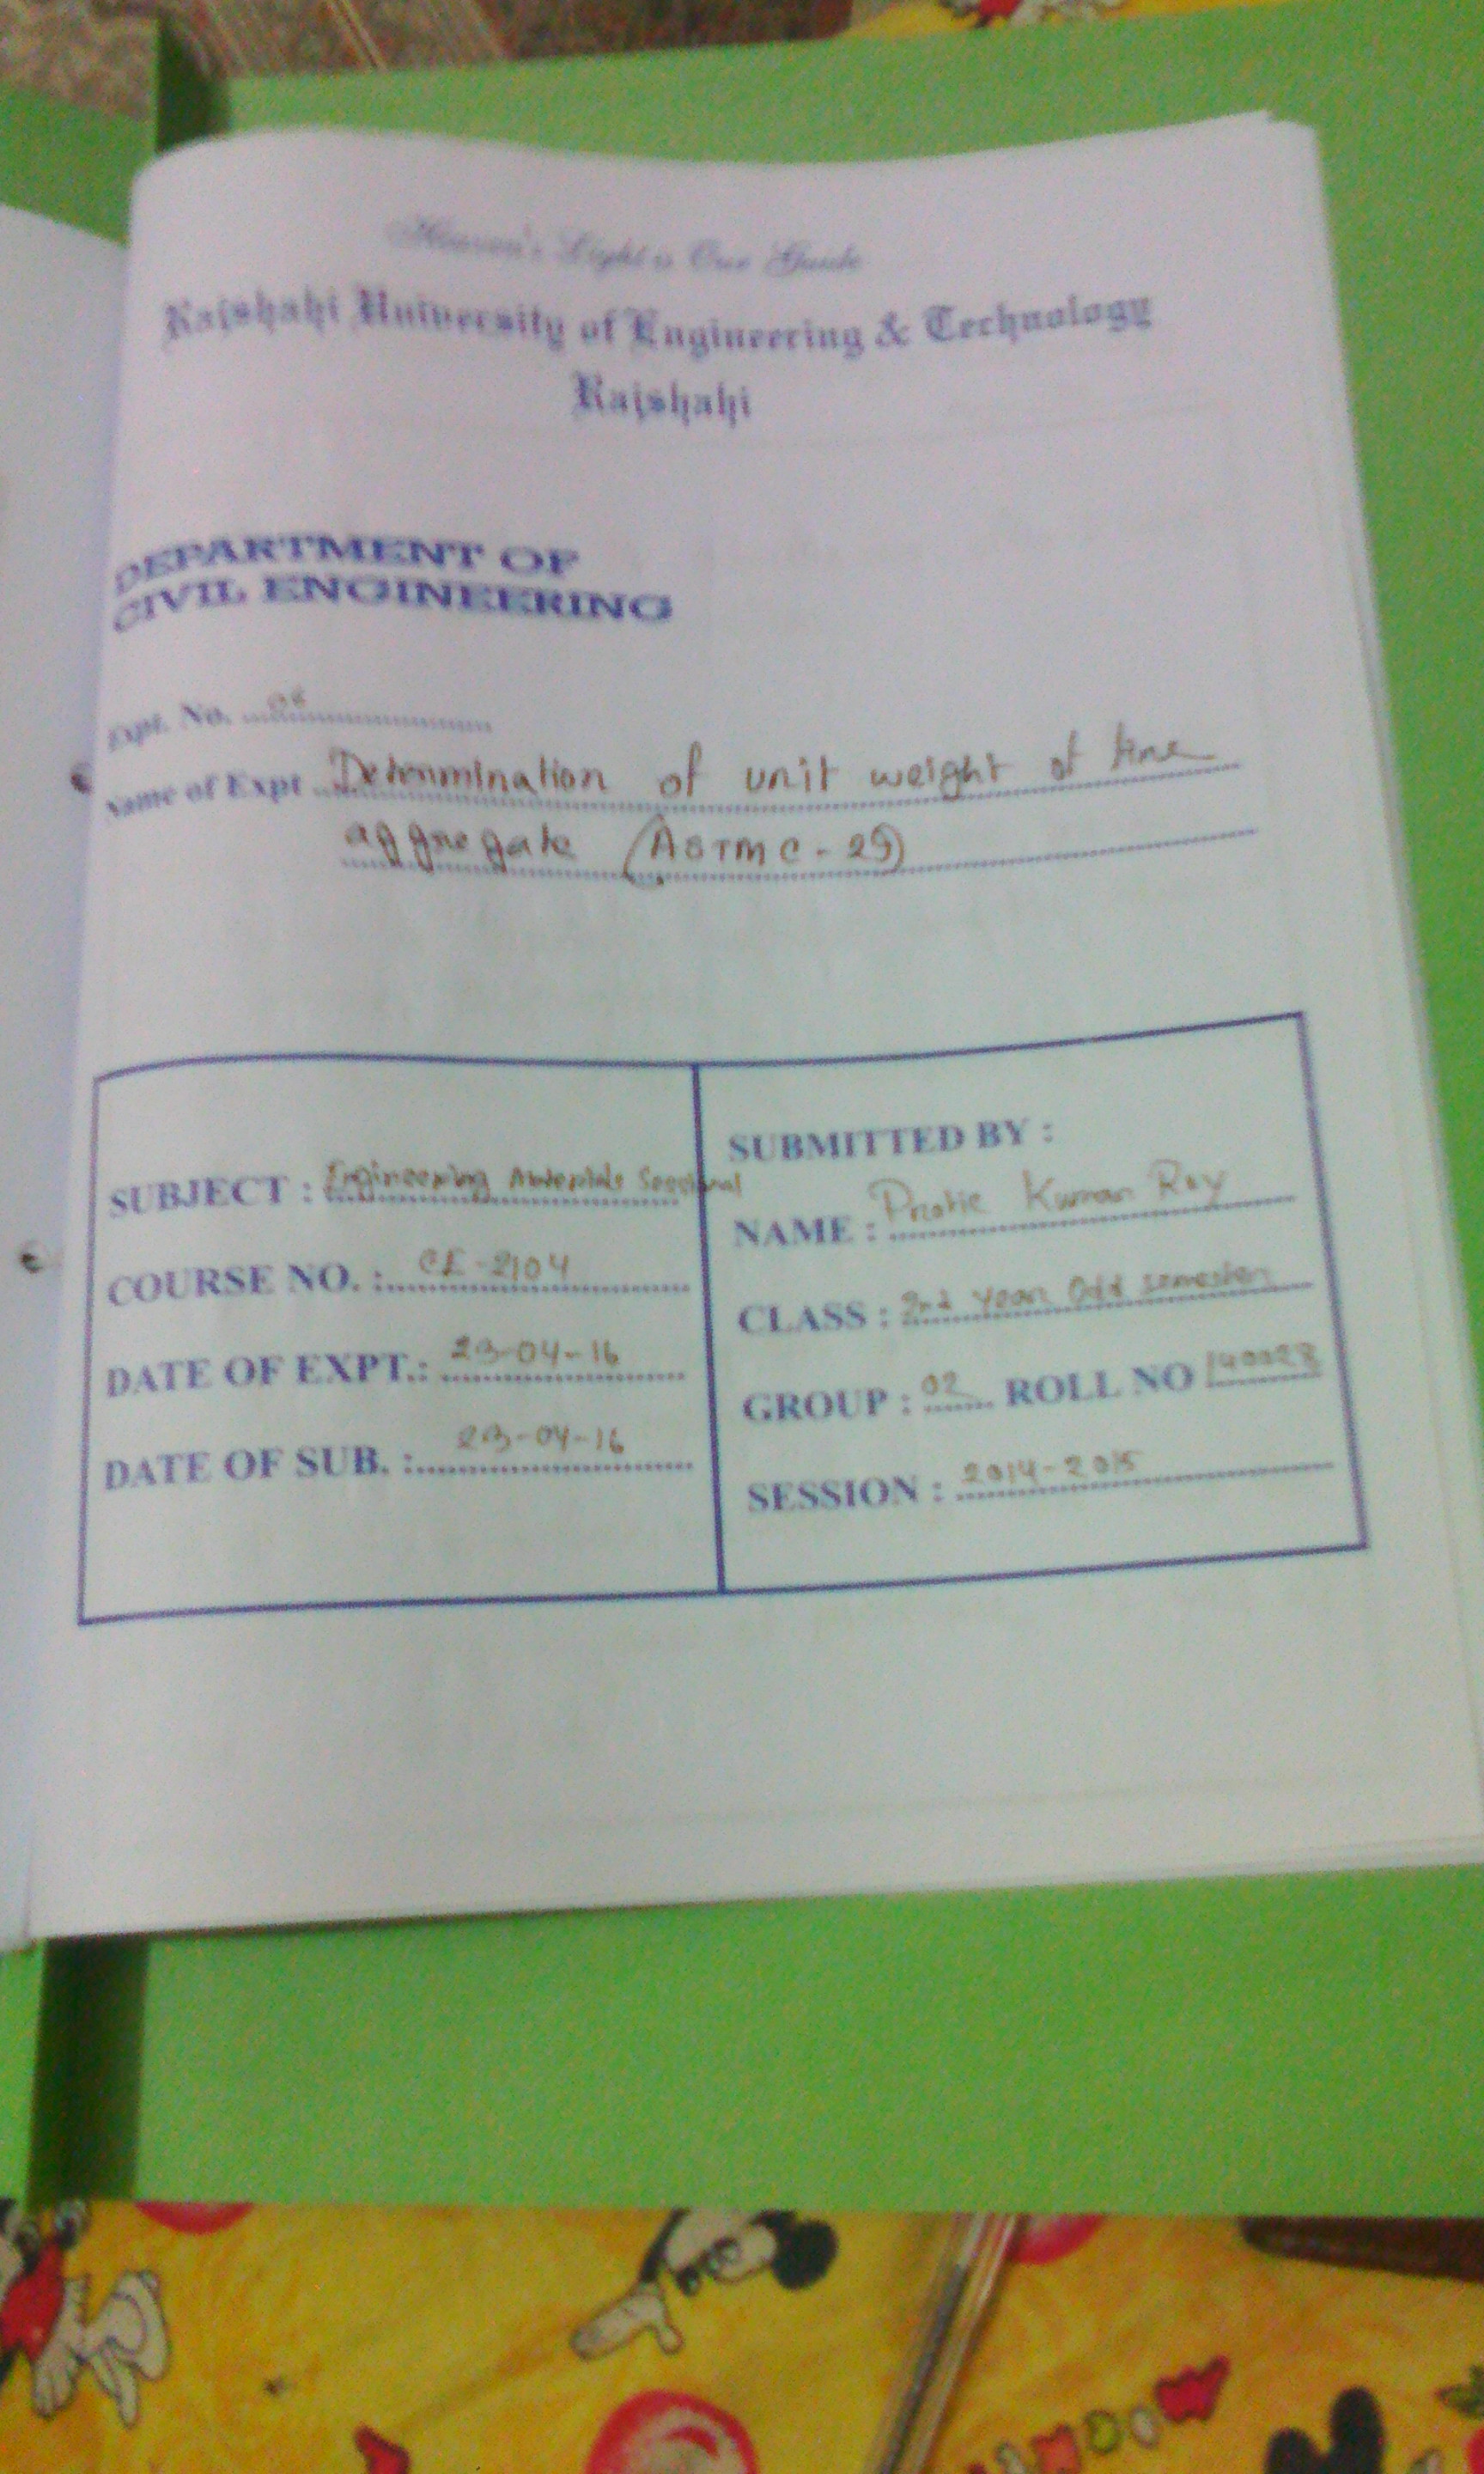 Heaven's Light is Our Guide
Rajshahi University of Engineering & Technology
Rajshahi
DEPARTMENT OF
CIVIL ENGINEERING
Expt. No.
Name of Expt Determination of unit weight of fine
aggregate (ASTM C-29)
SUBJECT : Engineering Materials Sessional
COURSE NO. : CE-2104
DATE OF EXPT.: 23-04-16
DATE OF SUB. : 23-04-16
SUBMITTED BY :
NAME : Kumar Roy
CLASS : 2nd year Odd semester
GROUP : 02 ROLL NO 140028
SESSION : 2014-2015